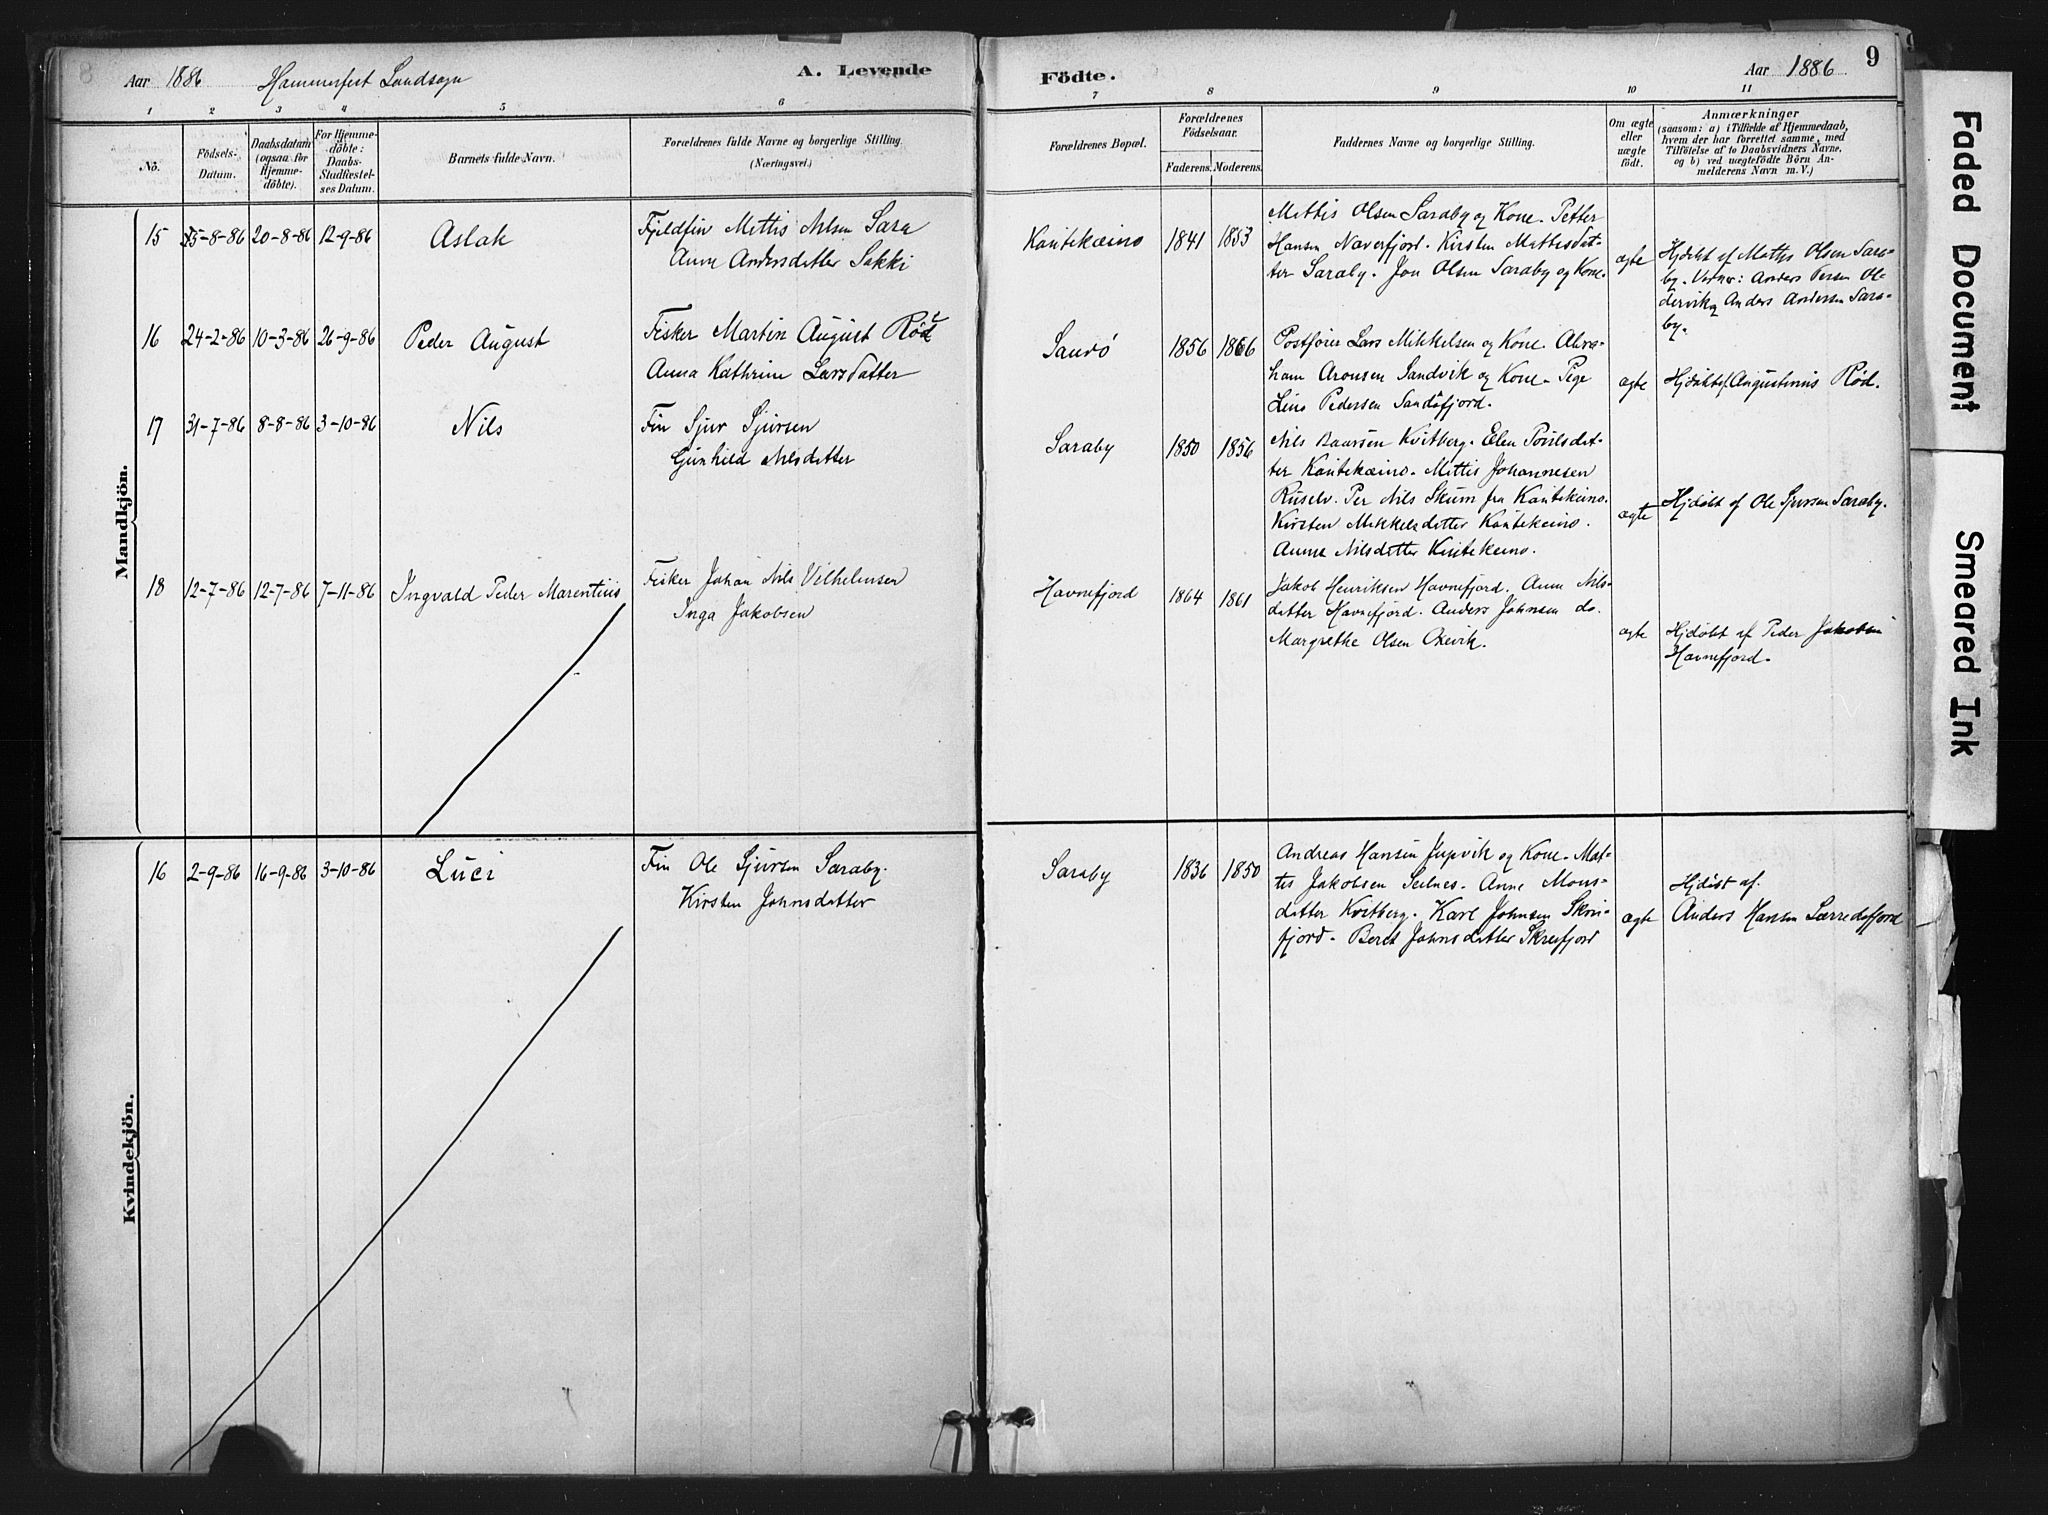 8
Aar 1886 Hammerfest Landsogn
A. Levende
Födte.
Aar 1886
9
1 2 3 4 5 6 7 8 9 10 11
No.
Födsels-
Datum.
Daabsdatum
(ogsaa for
Hjemme-
döbte).
For Hjemme-
döbte:
Daabs-
Stadfæstel-
ses Datum.
Barnets fulde Navn.
Forældrenes fulde Navne og borgerlige Stilling
(Næringsvei.)
Forældrenes Bopæl.
Forældrenes
Födselsaar.
Faderens. Moderens.
Faddernes Navne og borgerlige Stilling.
Om ægte
eller
uægte
födt.
Anmærkninger
(saasom: a) i Tilfælde af Hjemmedaab,
hvem der har forrettet samme, med
Tilföielse af to Daabsvidners Navne,
og b) ved uægtefödte Börn An-
melderens Navn m.V.)
Mandkjön.
15 5-8-86 20-8-86 12-9-86 Aslak
Fjeldfin Mettis Nilsen Sara
Anne Andersdatter Sakki
Kautekæino 1841 1853
Mettis Olsen Saraby og Kone. Petter
Hansen Naverfjord. Kirsten Mattisdat-
ter Saraby. Jon Olsen Saraby og Kone.
ægte
Hjdöbt af Mattis Olsen Sara-
by. Anders Persen Ol-
dervik og Anders Andersen Sara-
by.
16 24-2-86 10-3-86 26-9-86 Peder August
Fisker Martin August Rød
Anna Kathrine Larsdatter
Sandö 1856 1866
Postförer Lars Mikkelsen og Kone. Abra-
ham Aronsen Sandvik og Kone. Pige
Lina Pedersen Sandöfjord.
ægte
Hjdöbt af Augustinus Rød.
17 31-7-86 8-8-86 3-10-86 Nils
Fin Sjur Sjursen
Gunhild Nilsdatter
Saraby 1850 1856
Nils Baarsen Kvitberg. Elen Poulsdat-
ter Kautekæino. Mettis Johannesen
Ruselv. Per Nils Skum fra Kautekeino.
Kirsten Mikkelsdatter Kautekeino.
Anne Nilsdatter Kautekeino.
ægte
Hjdöbt af Ole Sjursen Saraby.
18 12-7-86 12-7-86 7-11-86 Ingvald Peder Marentius
Fisker Johan Nils Vilhelmsen
Inga Jakobsen
Havnefjord 1864 1861
Jakob Henriksen Havnefjord. Anne Nils-
datter Havnefjord. Anders Johnsen do.
Margrethe Olsen Oxevik.
ægte
Hjdöbt af Peder Jakobsen
Havnefjord.
Kvindekjön.
16 2-9-86 16-9-86 3-10-86 Luci
Fin Ole Sjursen Saraby.
Kirsten Johnsdatter
Saraby 1836 1850
Andreas Hansen Jupvik og Kone. Mat-
tis Jakobsen Seilnes. Anne Mons-
datter Kvitberg. Karl Johnsen Skrei-
fjord. Beret Johnsdatter Skreifjord
ægte
Hjdöbt af.
Anders Hansen Lærredsfjord
Faded Document
Smeared Ink